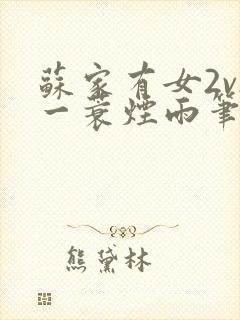 蘇家有女2v
一蓑煙雨筆
熊黛林